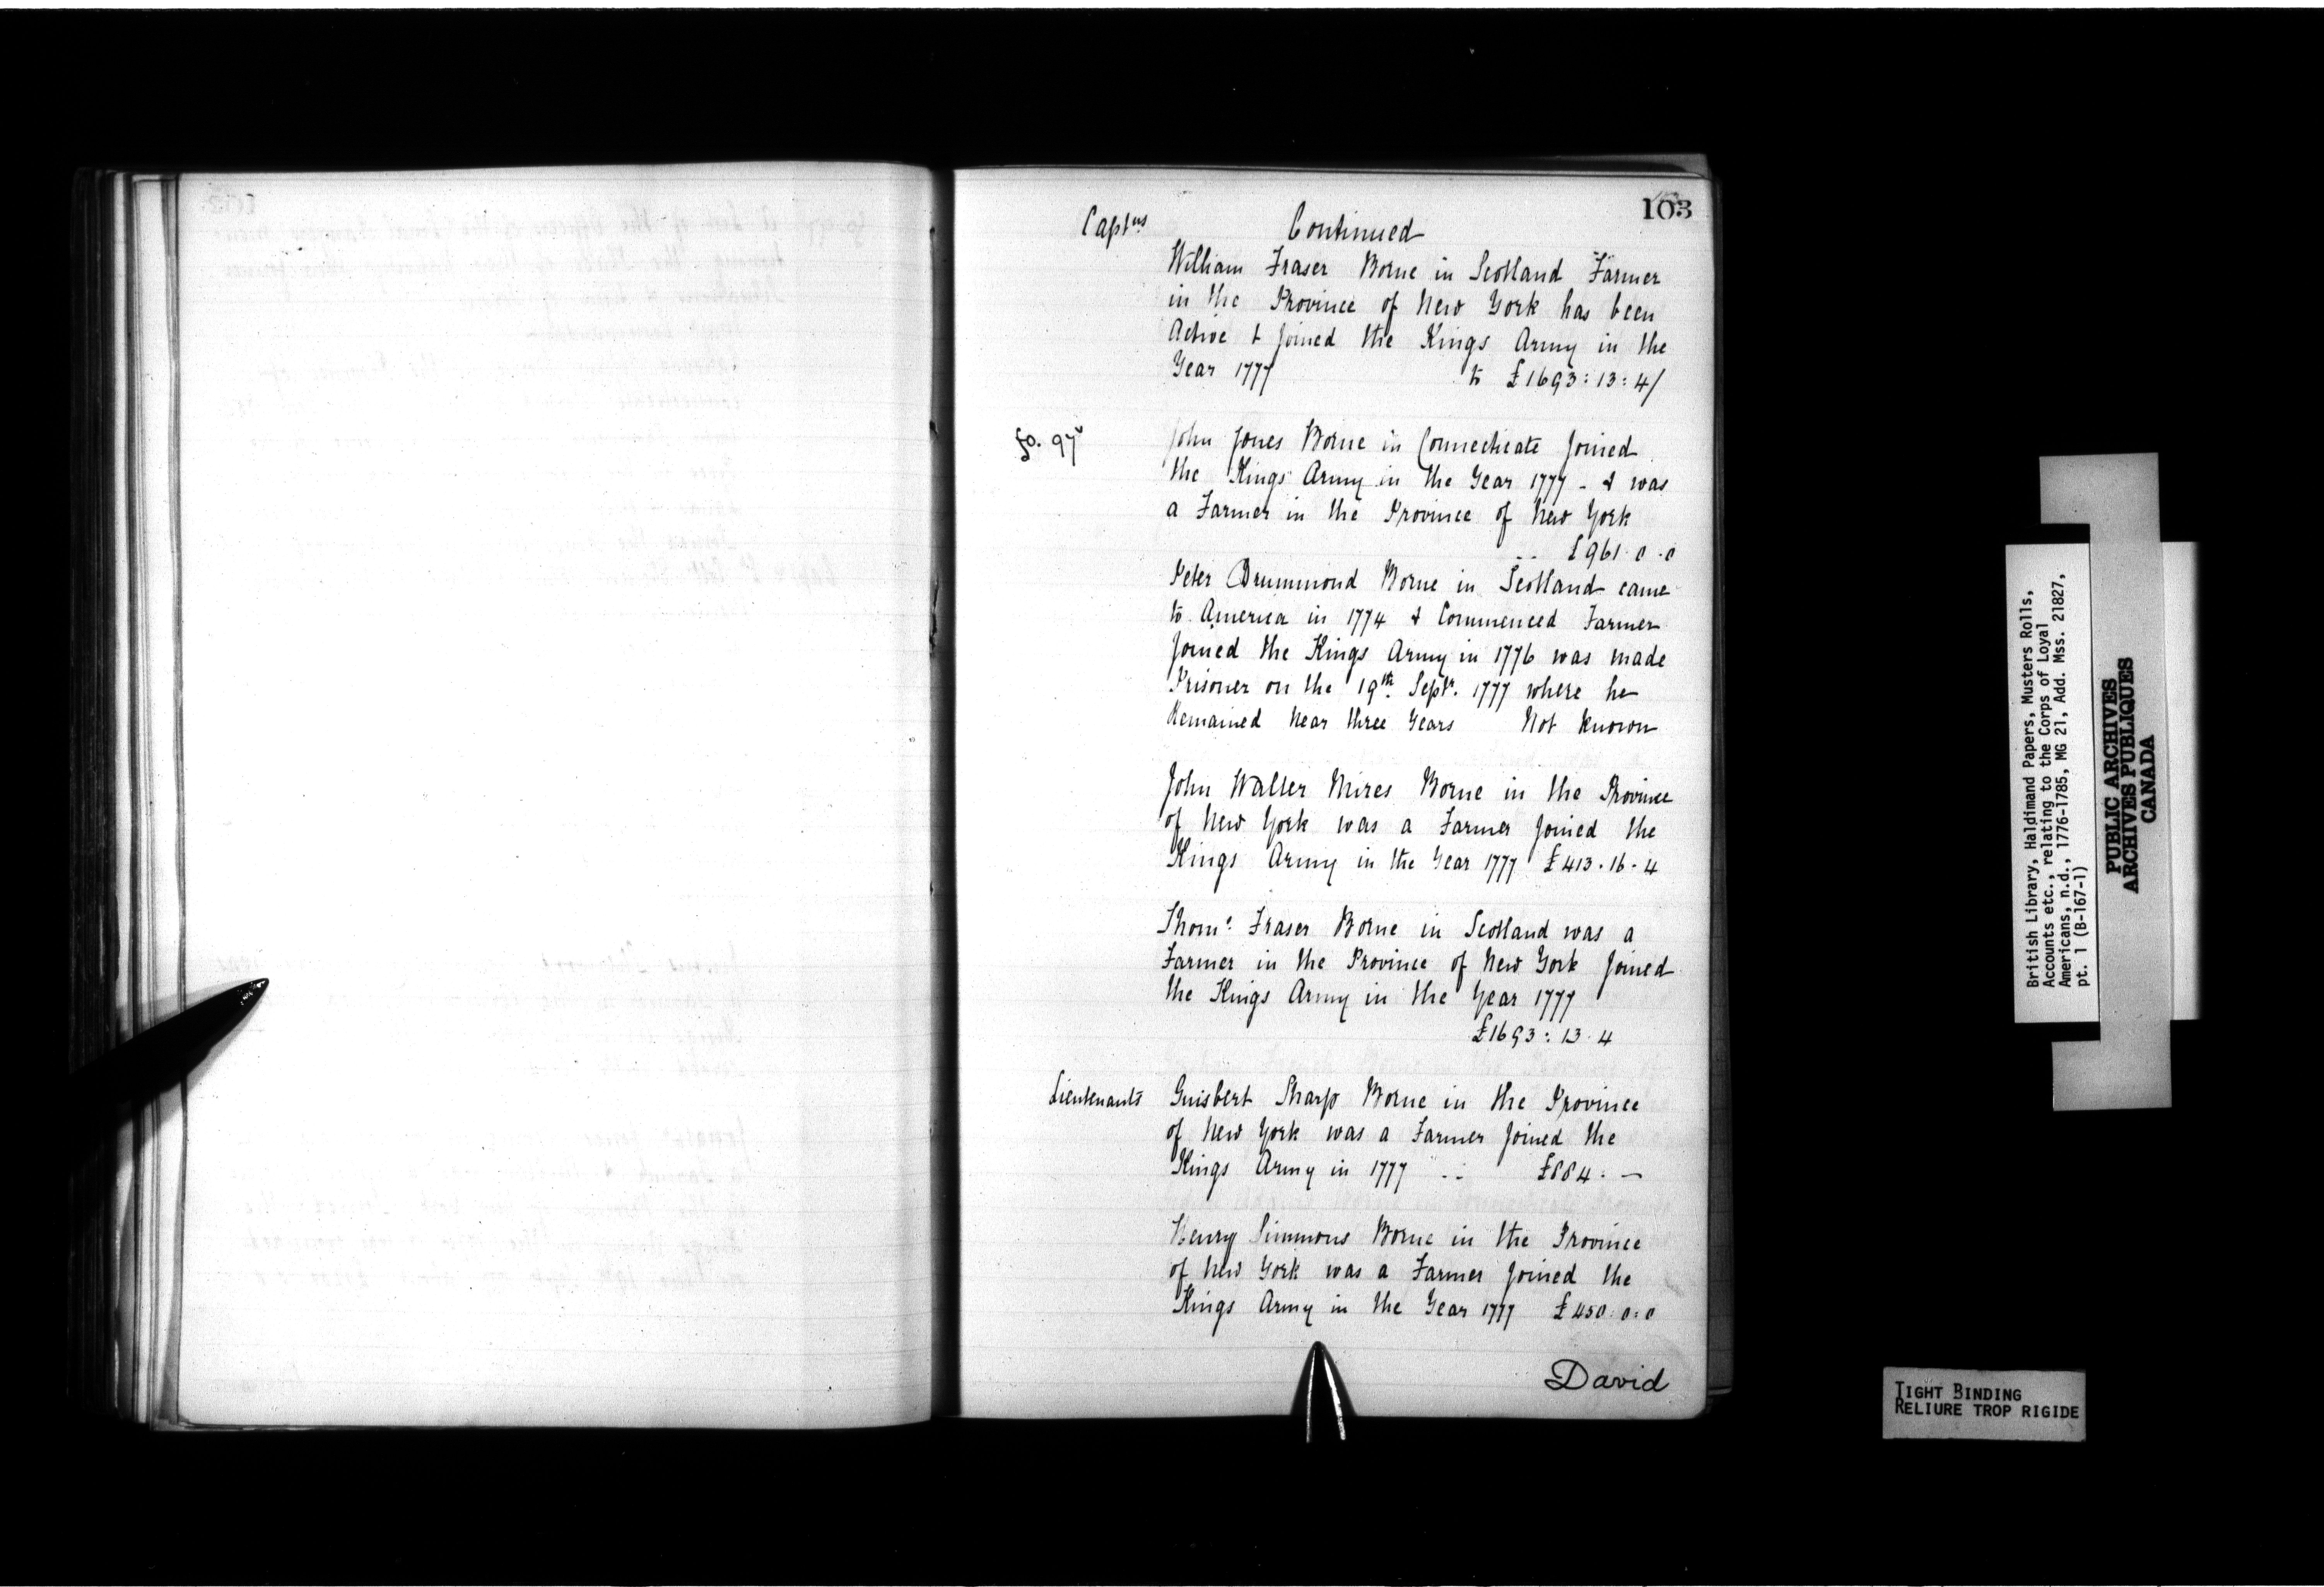 103
Captns Continued
William Fraser Borne in Scotland Farmer
in the Province of New York has been
Active & Joined the Kings Army in the
Year 1777 to £1693:13:4/
fo. 97v John Jones Borne in Connecticate Joined
the Kings Army in the Year 1777 - & was
a Farmer in the Province of New York
.. £961.0.0
Peter Drummond Borne in Scotland came
to America in 1774 & Commenced Farmer
Joined the Kings Army in 1776 was made
Prisoner on the 19th Septr. 1777 where he
Remained Near three Years Not Known
John Walter Mires Borne in the Province
of New York was a Farmer Joined the
Kings Army in the Year 1777 £413.16.4
Thoms. Fraser Borne in Scotland was a
Farmer in the Province of New York Joined
the Kings Army in the Year 1777
£1693:13.4
Lieutenants Guisbert Sharp Borne in the Province
of New York was a Farmer Joined the
Kings Army in 1777 .. £884. —
Henry Simmons Borne in the Province
of New York was a Farmer Joined the
Kings Army in the Year 1777 £450.0.0
David
British Library, Haldimand Papers, Musters Rolls,
Accounts etc., relating to the Corps of Loyal
Americans, n.d., 1776-1785, MG 21, Add. Mss. 21827,
pt. 1 (B-167-1)
PUBLIC ARCHIVES
ARCHIVES PUBLIQUES
CANADA
TIGHT BINDING
RELIURE TROP RIGIDE